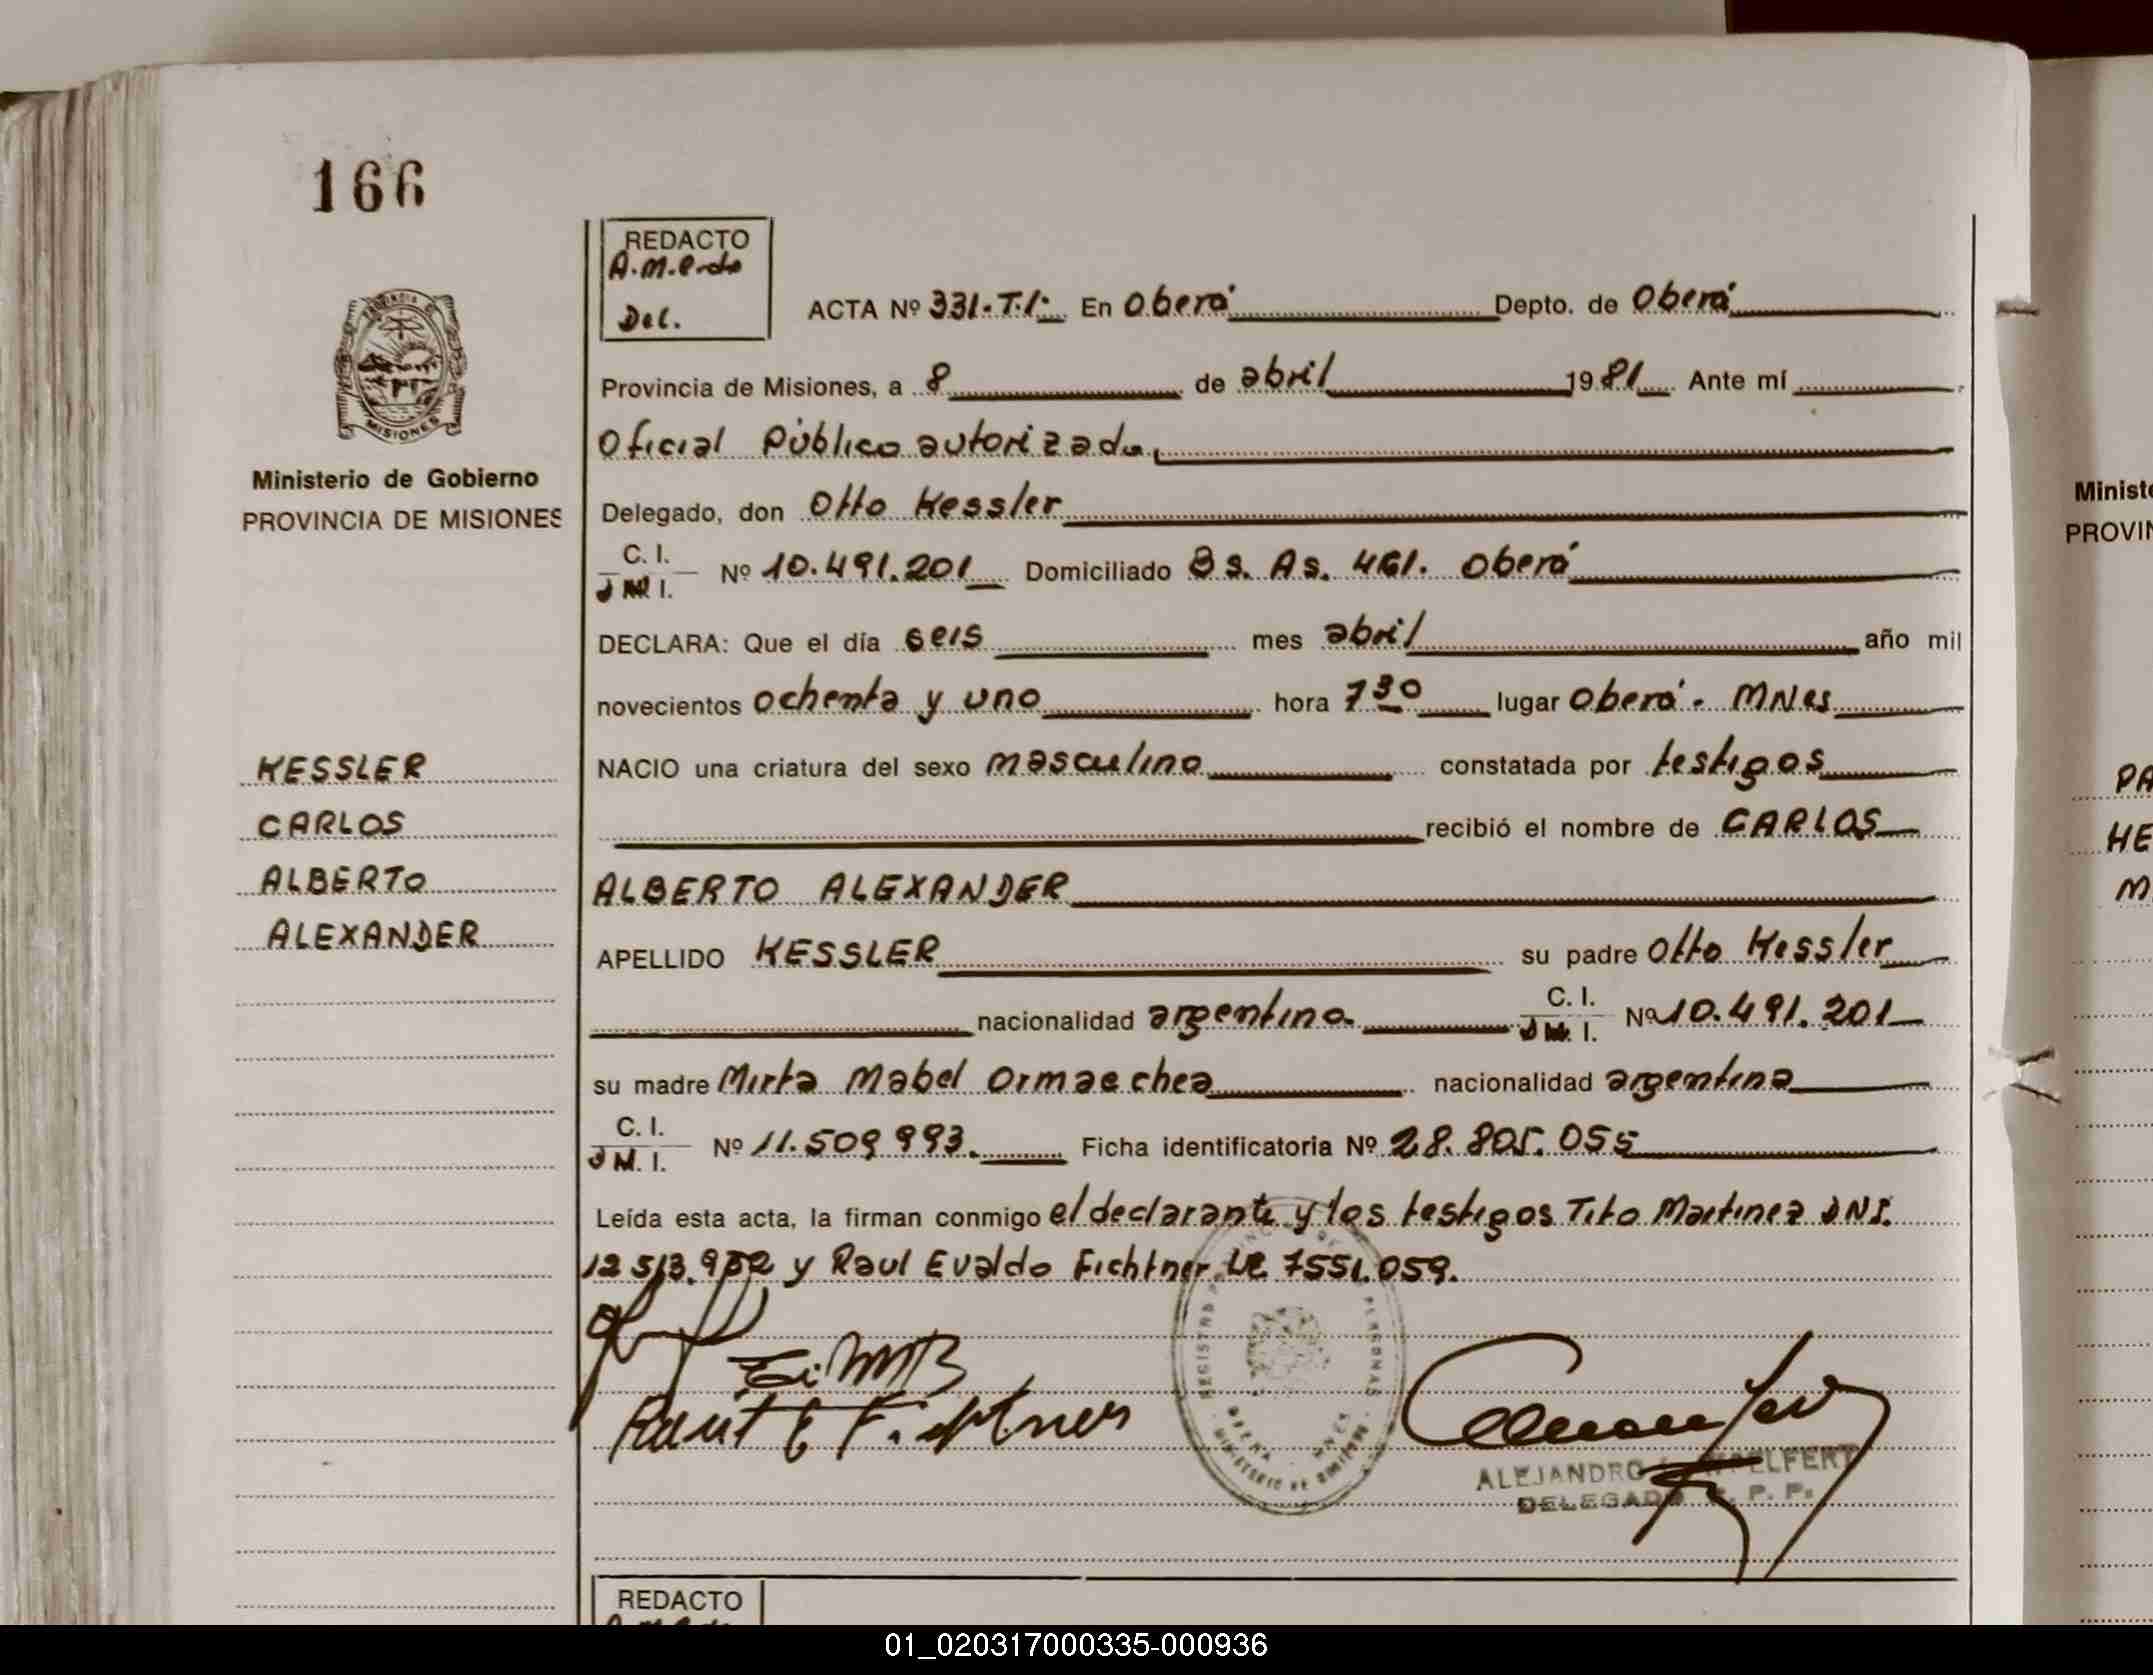 166
REDACTO
Del.
PROVINCIA DE
MISIONES
Ministerio de Gobierno
PROVINCIA DE MISIONES
KESSLER
CARLOS
ALBERTO
ALEXANDER
ACTA Nº 331-T.I. En Oberá Depto. de Oberá
Provincia de Misiones, a 8 de abril 1981 Ante mí
Oficial Público autorizado
Delegado, don Otto Kessler
C. I.
D N I. Nº 10.491.201 Domiciliado Bs. As. 461. Oberá
DECLARA: Que el día seis mes abril año mil
novecientos ochenta y uno hora 7 30 lugar Oberá. MNes
NACIO una criatura del sexo masculino constatada por testigos
recibió el nombre de CARLOS
ALBERTO ALEXANDER
APELLIDO KESSLER su padre Otto Kessler
nacionalidad argentina C. I.
D N I. Nº 10.491.201
su madre Mirta Mabel Ormaechea nacionalidad argentina
C. I.
D N I. Nº 11.509 993. Ficha identificatoria Nº 28.805.055
Leída esta acta, la firman conmigo el declarante y los testigos Tito Martinez DNI.
12 513.952 y Raul Evaldo Fichtner LE 7551.059.
Raul E Fichtner
REGISTRO PROVINCIAL DE PERSONAS
OBERA MNES
MINISTERIO DE GOBIERNO
ALEJANDRO WAELFERT
DELEGADO R. P. P.
REDACTO
Ministe
PROVIN
PA
HE
M
01_020317000335-000936